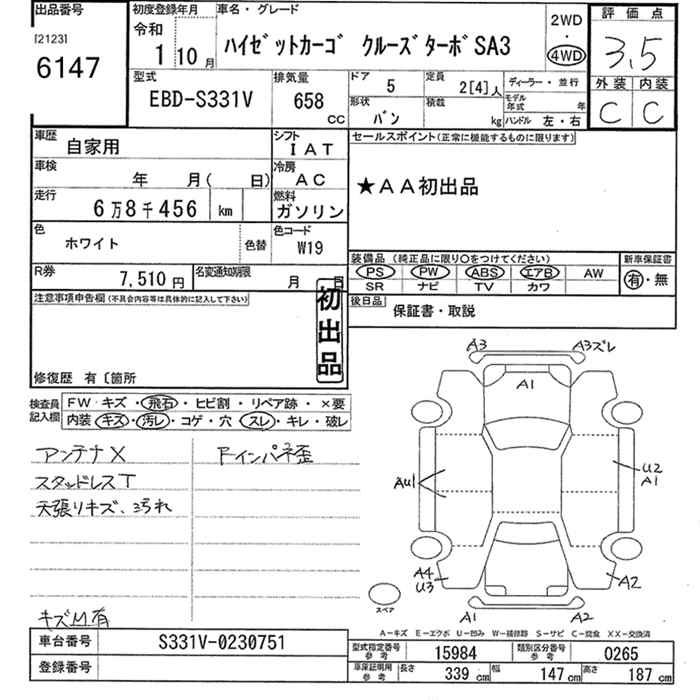 出品番号
[2123]
6147
初度登録年月
令和
1 10月
車名・グレード
ハイゼットカーゴ クルーズターボSA3
2WD
・
4WD
評価点
3.5
外装 内装
C C
型式
EBD-S331V
排気量
658
CC
ドア
5
定員
2[4]人
ディーラー・並行
形状
バン
積載
kg
モデル年式 年
ハンドル 左・右
車歴
自家用
シフト
IAT
車検
年 月( 日)
冷房
AC
走行
6万8千456 km
燃料
ガソリン
色
ホワイト
色替
色コード
W19
R券
7,510円
名変通知期限
月 日
セールスポイント(正常に機能するものに限ります)
★AA初出品
装備品(純正品に限り○をつけてください)
PS PW ABS エアB AW
SR ナビ TV カワ
新車保証書
有・無
後日品
保証書・取説
注意事項申告欄(不具合内容等は具体的に記入して下さい)
初出品
修復歴 有〔箇所
検査員
記入欄
FW キズ・飛石・ヒビ割・リペア跡・×要
内装 キズ・汚レ・コゲ・穴・スレ・キレ・破レ
アンテナX
Fインパネ歪
スタッドレスT
天張りキズ、汚れ
キズM有
A3
A3ズレ
A1
AU1
U2
A1
A4
U3
A2
スペア
A1
A2
A−キズ E−エクボ U−凹み W−補修跡 S−サビ C−腐食 XX−交換済
車台番号
S331V-0230751
登録番号
型式指定番号
参考
15984
類別区分番号
参考
0265
車庫証明用
参考
長さ 339cm 幅 147cm 高さ 187cm